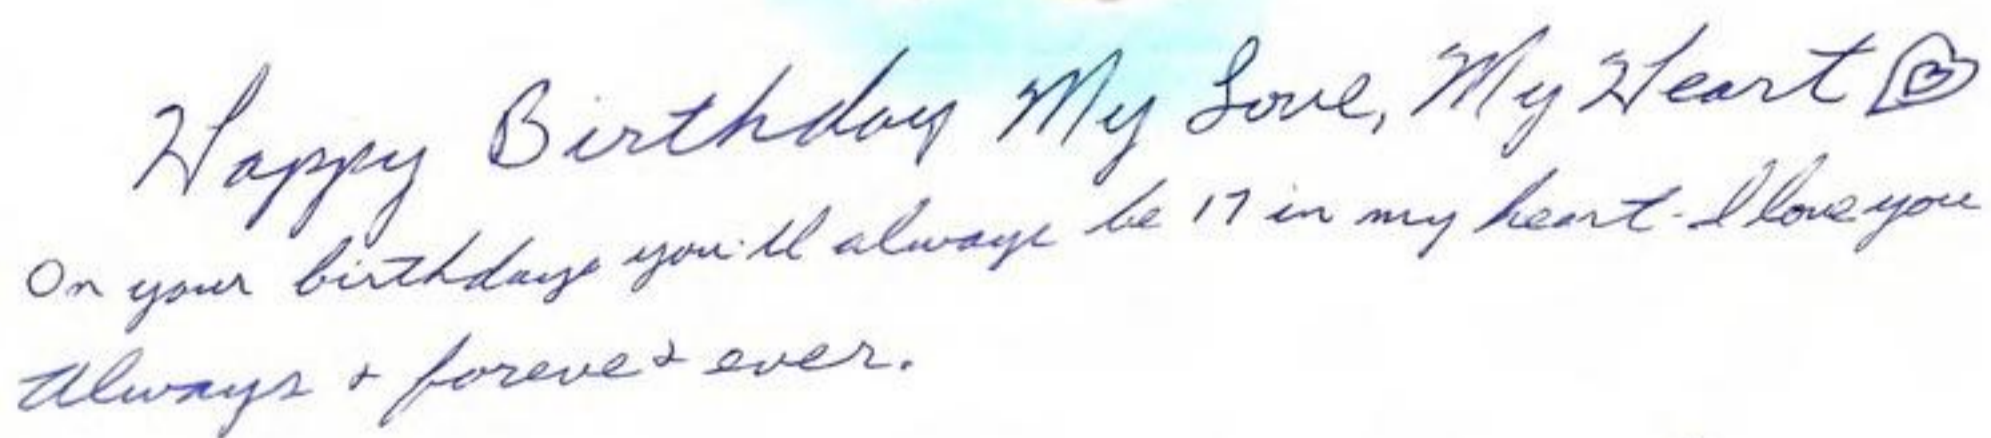 Happy Birthday My Love, My Heart
On your birthdays you'll always be 17 in my heart - I love you
Always + foreve + ever.